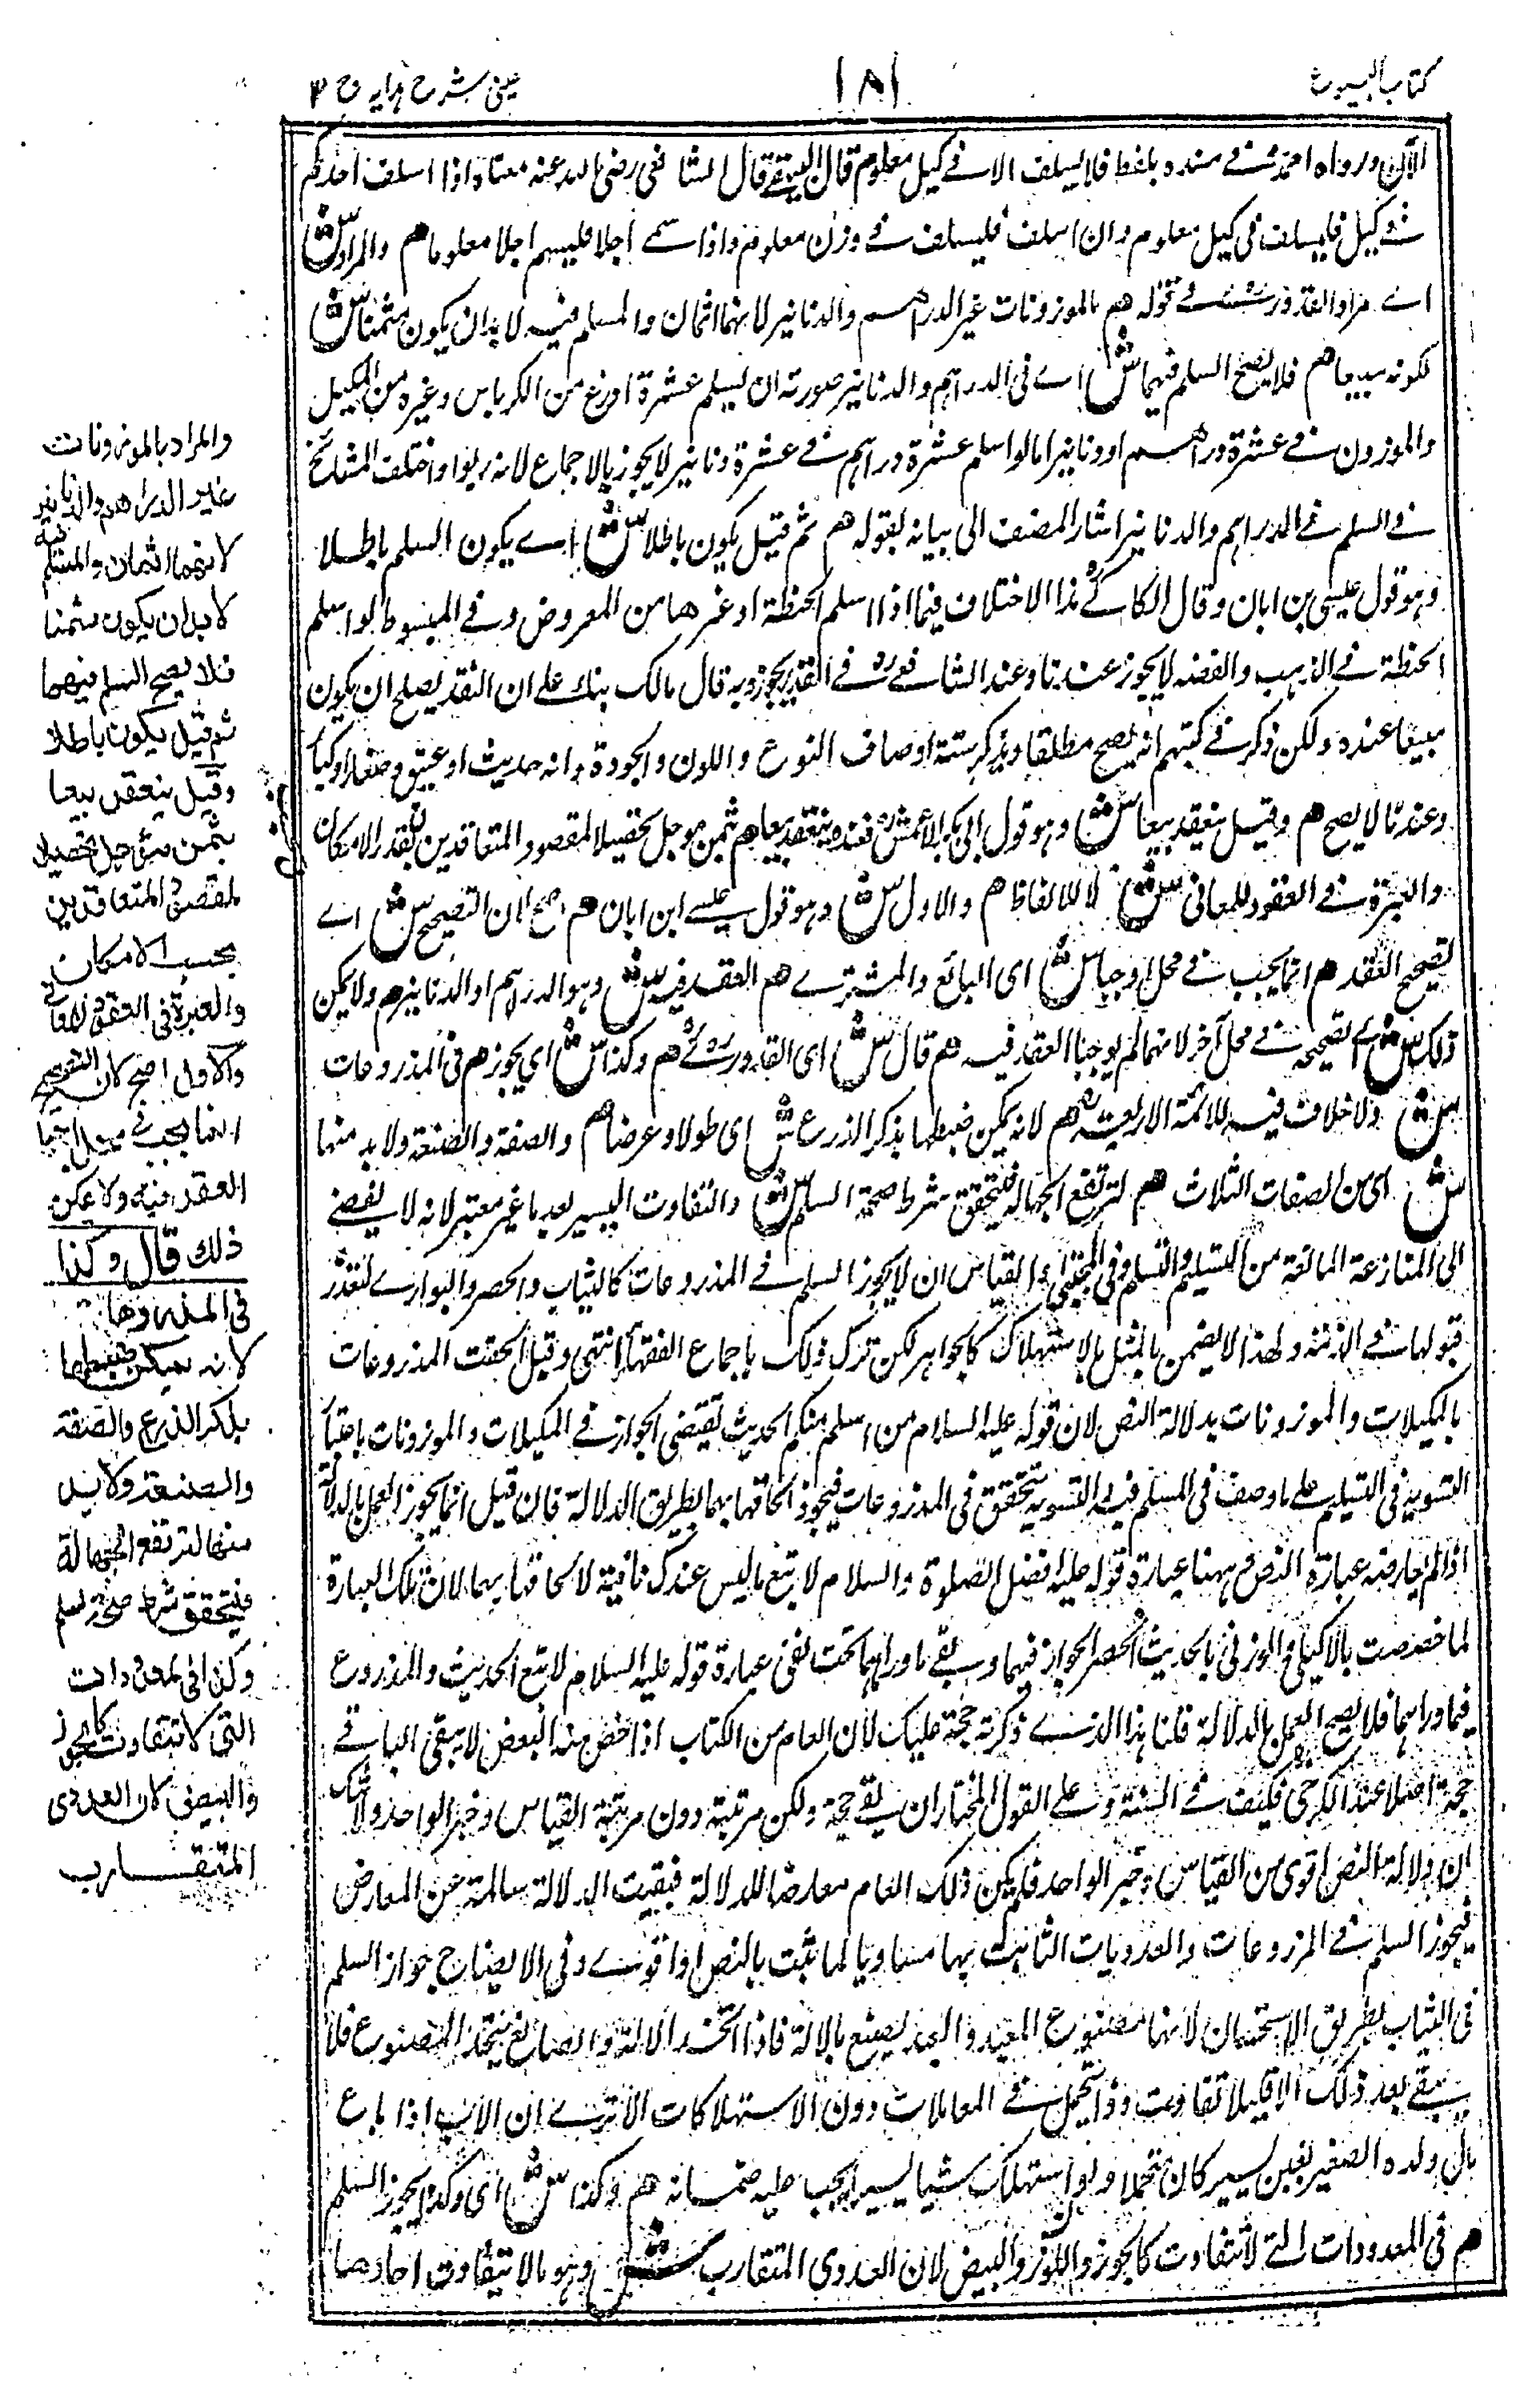 كتاب البيوع
١٨١
عينى شرح هدايه ج ٣
الآن ورواه احمد فى مسنده بلفظ فلا يسلف الا فى كيل معلوم قال البيهقى قال الشافعى رضى الله عنه معناه اذا اسلف احدكم
فى كيل فليسلف فى كيل معلوم وان اسلف فليسلف فى وزن معلوم واذا سمى اجلا فليسم اجلا معلوما هم والمراد ش
اى مراد القدورى فى قوله هم بالموزونات غير الدراهم والدنانير لانهما اثمان والمسلم فيه لا بد ان يكون مثمنا ش
لكونه مبيعا هم فلا يصح السلم فيهما ش اى فى الدراهم والدنانير صورته ان يسلم عشرة اذرع من الكرباس وغيره من المكيل
والموزون فى عشرة دراهم او دنانير اما لو اسلم عشرة دراهم فى عشرة دنانير لا يجوز بالاجماع لانه ربوا واختلف المشائخ
فى السلم فى الدراهم والدنانير اشار المصنف الى بيانه بقوله هم ثم قيل يكون باطلا ش اى يكون السلم باطلا
وهو قول عيسى بن ابان وقال الكاكى هذا الاختلاف فيما اذا اسلم الحنطة او غيرها من العروض وفى المبسوط لو اسلم
الحنطة فى الذهب والفضة لا يجوز عندنا وعند الشافعى فى النقد يجوز وبه قال مالك بناء على ان النقد يصلح ان يكون
مبيعا عنده ولكن ذكر فى كتبهم انه يصح مطلقا ويذكر ستة اوصاف النوع واللون والجودة وانه حديث او عتيق وصغارا وكبارا
وعندنا لا يصح هم وقيل ينعقد بيعا ش وهو قول ابى بكر الاعمش فعنده ينعقد بيعا هم بثمن موجل تحصيلا لمقصود المتعاقدين بقدر الامكان
والعبرة فى العقود للمعانى ش لا للالفاظ هم والاول ش وهو قول عيسى ابن ابان هم اصح لان التصحيح ش اى
تصحيح العقد هم انما يجب فى محل اوجبا ش اى البائع والمشترى هم العقد فيه ش وهو الدراهم او الدنانير هم ولا يمكن
ذلك ش اى تصحيحه فى محل آخر لانهما لم يوجبا العقد فيه هم قال ش اى القدورى هم وكذا ش اى يجوز هم فى المذروعات
ش ولا خلاف فيه للائمة الاربعة هم لانه يمكن ضبطها بذكر الذرع ش اى طولا وعرضا هم والصفة والصنعة ولا بد منها
ش اى من الصفات الثلاث هم لترتفع الجهالة فيتحقق شرط صحة السلم ش والتفاوت اليسير بعدها غير معتبر لانه لا يفضى
الى المنازعة المانعة من التسليم والتسلم وفى المجتبى والقياس ان لا يجوز السلم فى المذروعات كالثياب والحصر والبوارى لتعذر
قبولها فى الذمة ولهذا لا يضمن بالمثل بالاستهلاك كالجواهر لكن ترك ذلك باجماع الفقهاء انتهى وقيل الحقت المذروعات
بالمكيلات والموزونات بدلالة النص لان قوله عليه السلام من اسلم منكم الحديث يقتضى الجواز فى المكيلات والموزونات باعتبار
التسوية فى التسليم على ما وصف فى المسلم فيه والتسوية تتحقق فى المذروعات فيجوز الحاقها بهما بطريق الدلالة فان قيل انما يجوز العمل بالدلالة
اذا لم يعارضه عبارة النص وههنا عبارة قوله عليه افضل الصلوة والسلام لا تبع ما ليس عندك نافية لالحاقها بهما لان تلك العبارة
لما خصصت بالكيلى والوزنى بالحديث انحصر الجواز فيهما وبقى ما وراءهما تحت نفى عبارة قوله عليه السلام لا تبع الحديث والمذروع
فيما وراءهما فلا يصح العمل بالدلالة قلنا هذا الذى ذكرته حجة عليك لان العام من الكتاب اذا خص منه البعض لا يبقى الباقى
حجة اصلا عند الكرخى فكيف فى السنة وعلى القول المختار ان يبقى حجة ولكن مرتبته دون مرتبة القياس وخبر الواحد ولا شك
ان دلالة النص اقوى من القياس وخبر الواحد فلم يكن ذلك العام معارضا للدلالة فبقيت الدلالة سالمة عن المعارض
فيجوز السلم فى المزروعات والعدديات الثابت بها مساويا لما ثبت بالنص او اقوى وفى الايضاح جواز السلم
فى الثياب بطريق الاستحسان لانها مصنوع العبد والعبد يصنع بالالة فاذا اتحدا الالة والصانع يتحد المصنوع فلا
يبقى بعد ذلك الا قليلا تفاوت وذا يتحمل فى المعاملات دون الاستهلاكات الا ترى ان الاب اذا باع
مال ولده الصغير بغبن يسير كان متحملا ولو استهلك شيئا يسيرا يجب عليه ضمانه هم وكذا ش اى وكذا يجوز السلم
هم فى المعدودات التى لا تتفاوت كالجوز واللوز والبيض لان العددى المتقارب ش وهو مالا يتفاوت احادها
والمراد بالموزونات
غير الدراهم والدنانير
لانهما اثمان والمسلم فيه
لا بد ان يكون مثمنا
فلا يصح السلم فيهما
ثم قيل يكون باطلا
وقيل ينعقد بيعا
بثمن مؤجل تحصيلا
لمقصود المتعاقدين
بحسب الامكان
والعبرة فى العقود للمعانى
والاول اصح لان التصحيح
انما يجب فى محل اوجبا
العقد فيه ولا يمكن
ذلك قال وكذا
فى المذروعات
لانه يمكن ضبطها
بذكر الذرع والصفة
والصنعة ولا بد
منها لترتفع الجهالة
فيتحقق شرط صحة السلم
وكذا فى المعدودات
التى لا تتفاوت كالجوز
والبيض لان العددى
المتقارب